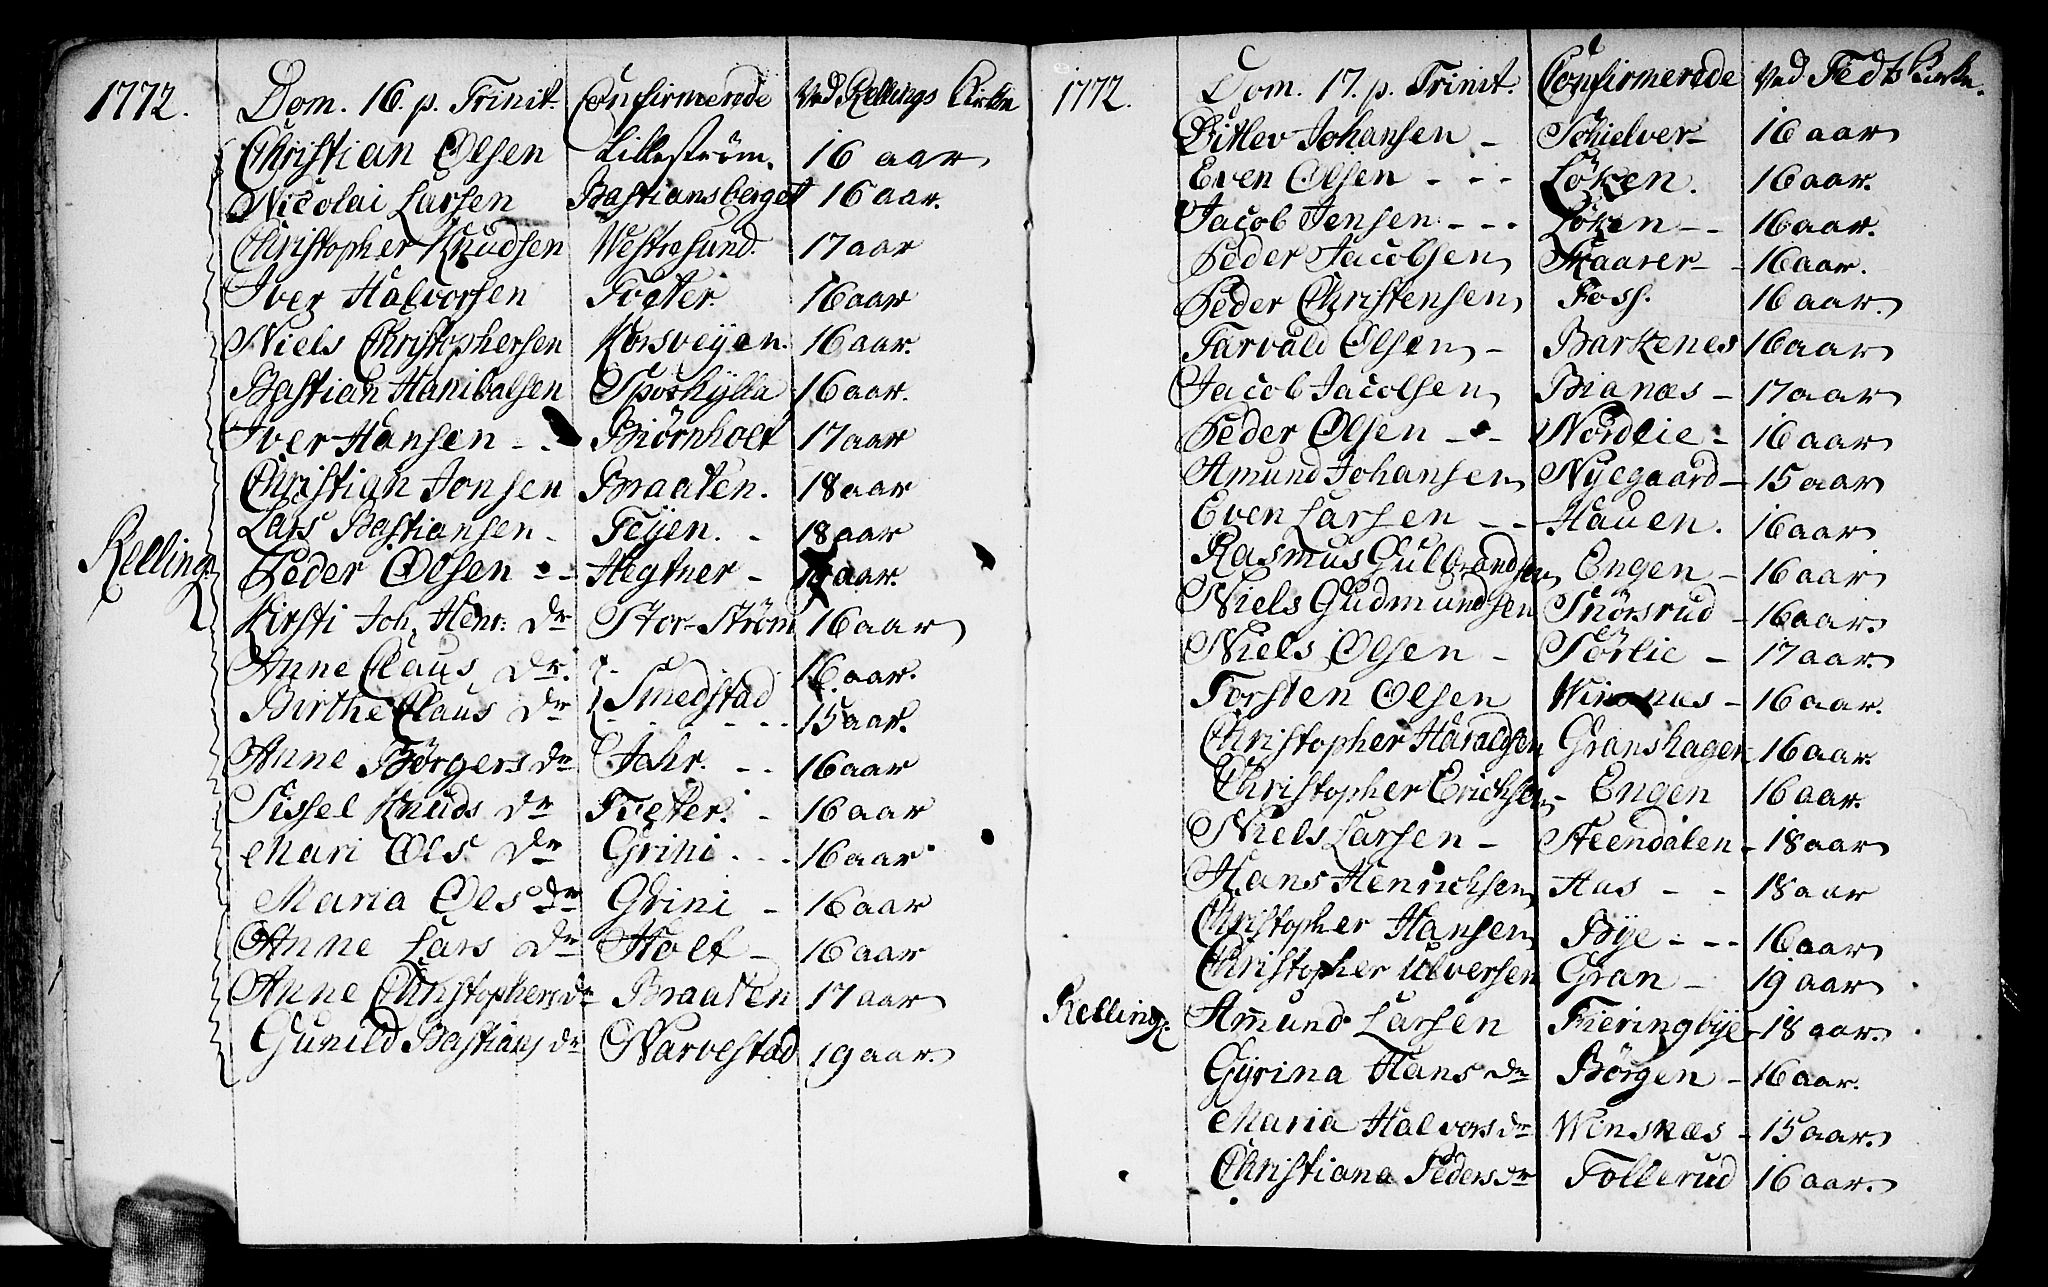 1772. Dom. 16. p. Trinit. Confirmerede ved Rellings Kirke
Christian Olsen Lillestrøm. 16 aar
Nicolai Larsen Bastiansberget 16 aar.
Christopher Knudsen Vestresund. 17 aar
Iver Halvorsen Toeter. 16 aar
Niels Christophersen Korsveyen. 16 aar.
Bastian Hanibalsen 16 aar.
Iver Hansen - - Biörnholt 17 aar
Christian Jonsen Braaten. 18 aar
Lars Bastiansen - Teyen. - 18 aar
Relling. Peder Olsen - - Hegtner - aar.
Kirsti Joh. Henr: dr Stor-Ström 16 aar
Anne Claus dr. 16 aar.
Birthe Claus dr Smedstad 15 aar.
Anne Börgers dr Jahr. - - 16 aar
Sissel Knuds dr Toeter. - 16 aar
Mari Ols dr Grini - - - 16 aar
Maria Ols dr Grini - 16 aar
Anne Lars dr Holt - 16 aar
Anne Christophers dr Braaten 17 aar
Gunild Bastians dr Narvestad 19 aar.
1772. Dom. 17. p. Trinit. Confirmerede ved Fedts Kirke.
Ditlev Johansen - Schielver - 16 aar
Even Olsen - - - Löken. 16 aar.
Jacob Jensen - - - Löken - - 16 aar.
Peder Jacobsen Skaarer - - 16 aar.
Peder Christensen Foss. 16 aar.
Tarvald Olsen - Barkenes 16 aar
Jacob Jacobsen Bianæs - 17 aar
Peder Olsen - - Nordlie - 16 aar
Amund Johansen Nyegaard - 15 aar
Even Larsen - - Hauen. 16 aar
Rasmus Gulbrandsen Engen - 16 aar
Niels Gudmundsen Snörsrud - 16 aar.
Niels Olsen - Sörlie - 17 aar.
Torsten Olsen - 16 aar.
Christopher Haraldsen Granshagen 16 aar.
Christopher Erichsen - Engen 16 aar.
Niels Larsen - Steendalen - 18 aar
Hans Henrichsen Aas - - 18 aar
Christopher Hansen Bye - - - 16 aar
Christopher Ulversen Gran - 19 aar
Relling. Amund Larsen Fieringbye 18 aar.
Gyrina Hans dr Börgen - 16 aar.
Maria Halvors dr Winsnæs - 15 aar.
Christiana Peders dr Tollerud 16 aar.